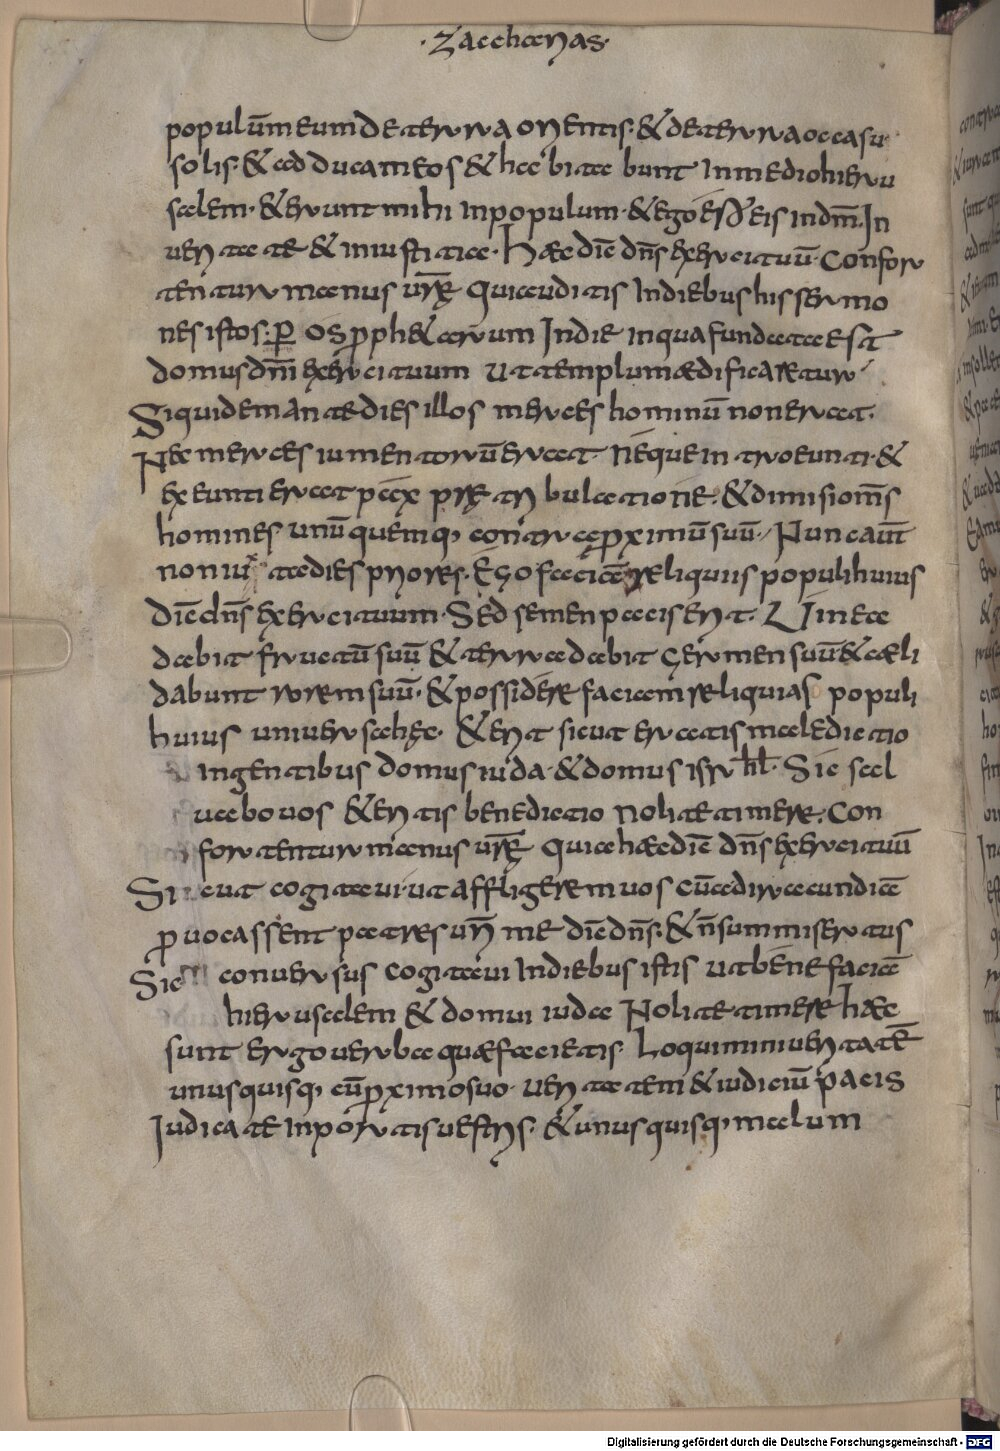 ·Zacharias·
populūm eum de terra orientis· & de terra occasu
solis· & adducam eos & habitabunt In medio hieru
salem· & erunt mihi In populum· & ego ero eis In dm̄· In
ueritate & In iustitia· Haec dic̄ dn̄s exercituū· Confor
tentur manus ur̄ę Qui auditis In diebus his sermo
nes istos· ꝑ os ꝓphetarum In die In qua fundata est
domus dn̄i exercituum Ut templum ædificaretur
Siquidem ante dies illos merces hominū non erat·
Nec merces iumentorū erat· Neque In troeunti· &
exeunti erat pax præ tribulatione· & dimisi om̄s
homines unū quemq; contra ꝓximū suū· Nunc aūt
non iuxta dies priores· Ego faciā reliquiis populi huius
Dic̄ dn̄s exercituum· Sed semen pacis erit· Uinea
dabit fructū suū & terra dabit germen suū & cæli
dabunt rorem suū· & possidere faciam reliquias populi
huius uniuersa hęc· & erit sicut eratis maledictio
In gentibus domus iuda & domus isrl̄· Sic sal
uabo uos & eritis benedictio Nolite timere· Con
fortentur manus ur̄ę Quia haec dic̄ dn̄s exercituū
Sicut cogitaui· ut affligerem uos cū ad iracundiā
ꝓuocassent patres ur̄i me dic̄ dn̄s· & n̄ sum misertus
Sic conuersus cogitaui In diebus istis ut benefaciā
hierusalem & domui iuda Nolite timere haec
sunt ergo uerba quæ facietis· Loquimini ueritatē
unusquisq; cū ꝓximo suo· ueritatem & iudiciū pacis
Iudicate In portis uestris· & unusquisq; malum
Digitalisierung gefördert durch die Deutsche Forschungsgemeinschaft - DFG